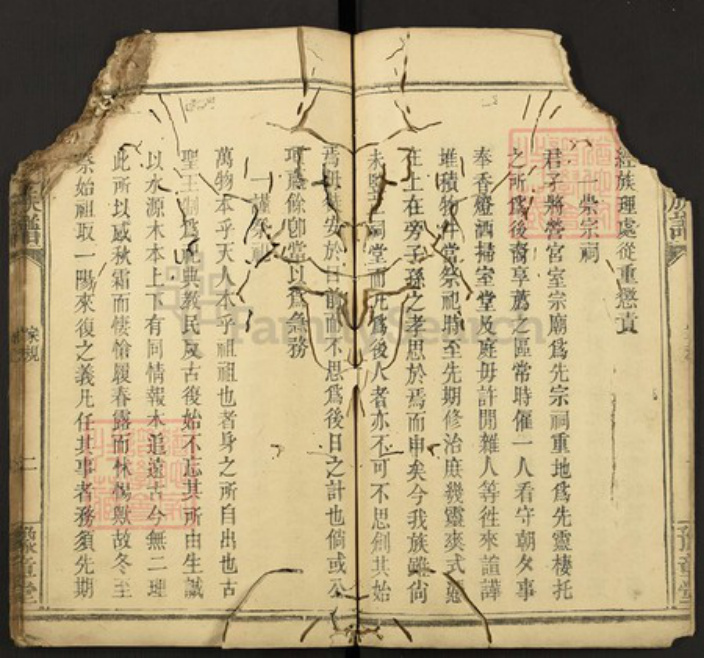 經族理處從重懲責
一崇宗祠
君子將營宮室宗廟爲先宗祠重地爲先靈棲托
之所爲後裔享薦之區常時僱一人看守朝夕事
奉香燈洒掃室堂及庭毋許閒雜人等徃來諠譁
堆積物件當祭祀時至先期修治庶幾靈爽式憑
在上在旁子孫之孝思於焉而申矣今我族雖尙
未堂祠堂而凡爲後人者亦不可不思創其始
焉毋徒安於目前而不思爲後日之計也倘或公
項蓄餘卽當以爲急務
一謹祭祀
萬物本乎天人本乎祖祖也者身之所自出也古
聖王制爲祀典教民反古復始不忘其所由生誠
以水源木本上下有同情報本追遠古今無二理
此所以感秋霜而悽愴履春露而怵惕歟故冬至
祭始祖取一陽來復之義凡任其事者務須先期
族譜
家規
二
豫章堂
FamilySearch